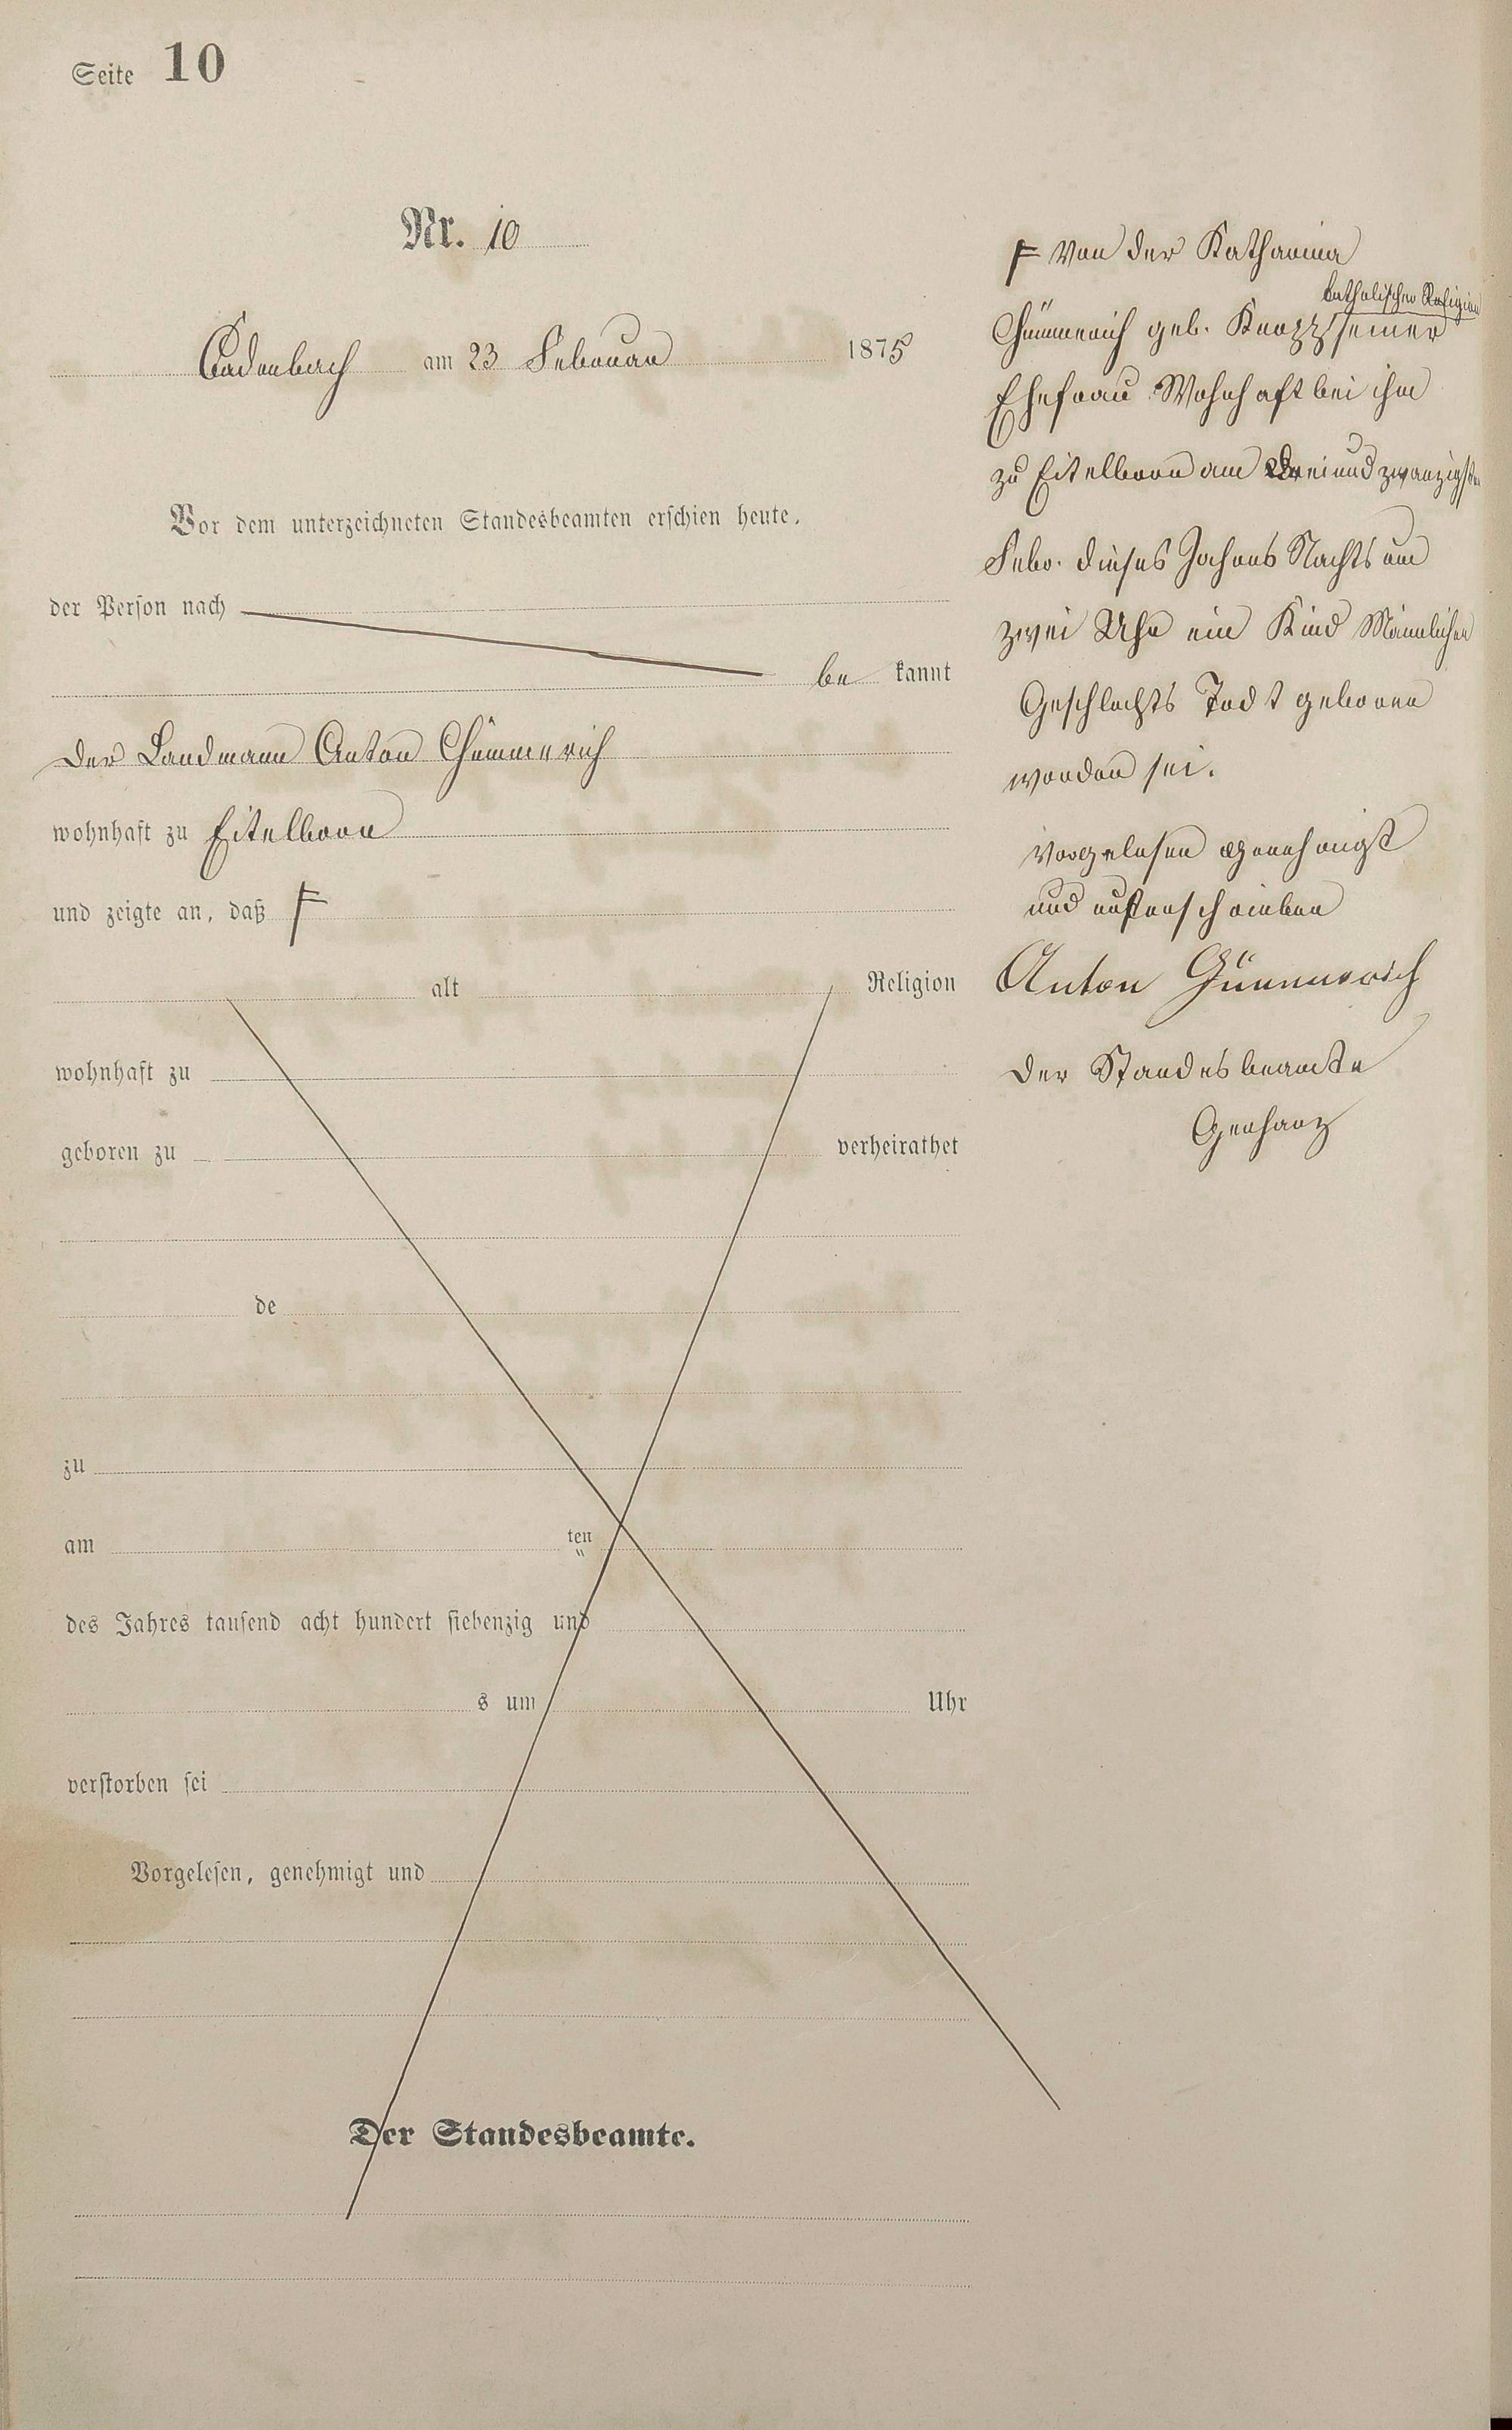 Seite 10
Nr. 10
Cadenbach am 23 Februar 1875
Vor dem unterzeichneten Standesbeamten erschien heute,
der Person nach
be kannt
der Landmann Anton Gümmerich
wohnhaft zu Eitelborn
und zeigte an, daß F
alt Religion
wohnhaft zu
geboren zu verheirathet
de
zu
am ten
des Jahres tausend acht hundert siebenzig und
s um Uhr
verstorben sei
Vorgelesen, genehmigt und
Der Standesbeamte.
F von der Katharina
katholischer Religion
Gümmerich geb. seiner
Ehefrau Wohnhaft bei ihm
zu Eitelborn am Dreiundzwanzigsten
Febr. dieses Jahres Nachts um
zwei Uhr ein Kind Männlichen
Geschlechts Todt geboren
worden sei.
Vorgelesen genehmigt
und unterschrieben
Anton Gümmerich
Der Standesbeamte
Gerharz